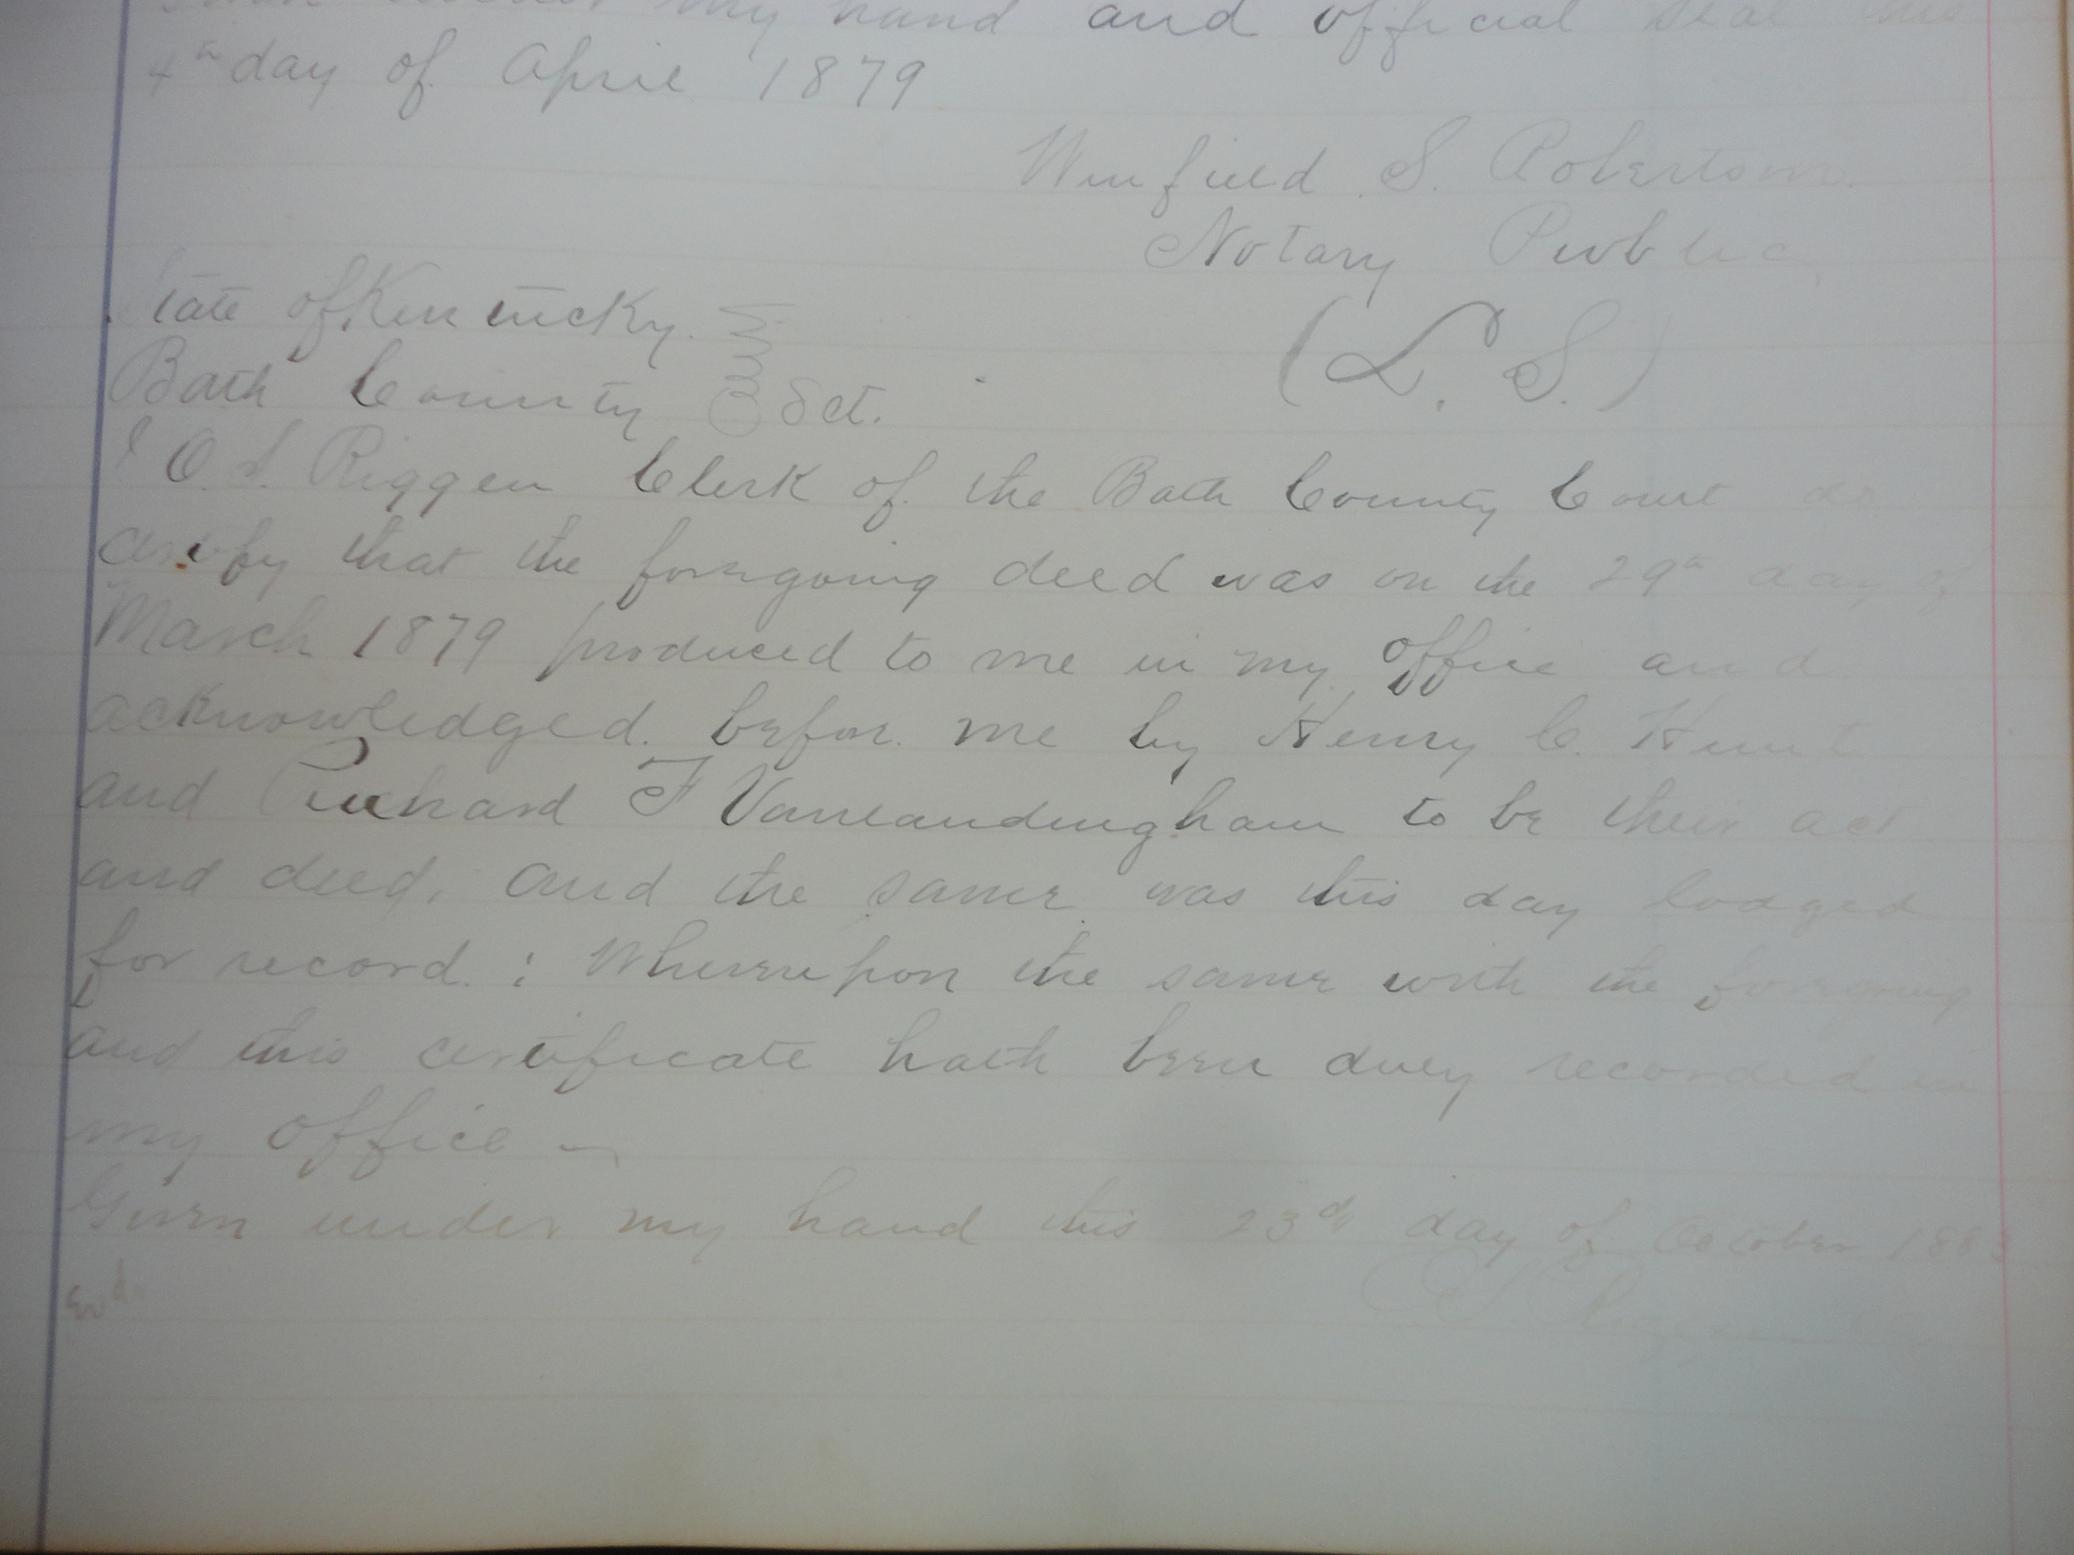 under my hand and official seal this
4th day of April 1879
Winfield S. Robertson
Notary Public
State of Kentucky.
(L. S.)
Bath County Sct.
I O. S. Riggen Clerk of the Bath County Court do
certify that the foregoing deed was on the 29th day of
March 1879 produced to me in my office and
acknowledged. before me by Henry C. Hunt
and Richard F Vanlandingham to be their act
and deed, and the same was this day lodged
for record. : Whereupon the same with the foregoing
and this certificate hath been duly recorded in
my office
Given under my hand this 23d day of October 1883